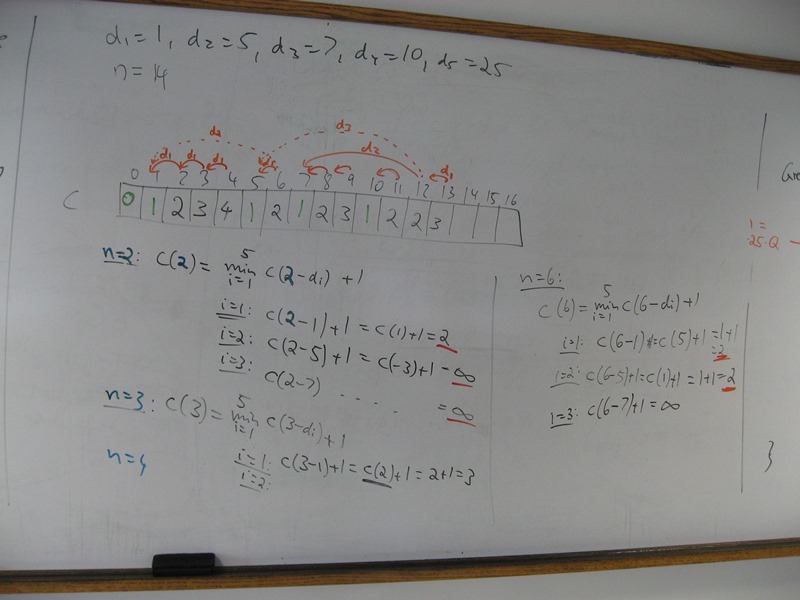 d₁=1, d₂=5, d₃=7, d₄=10, d₅=25
n=14
d₂ d₃
d₁ d₁ d₁ d₁ d₂ d₁
0 1 2 3 4 5 6 7 8 9 10 11 12 13 14 15 16
C 0 1 2 3 4 1 2 1 2 3 1 2 2 3
n=2: C(2) = min_{i=1}^{5} C(2-dᵢ) +1
i=1: C(2-1)+1 = C(1)+1 = 2
i=2: C(2-5)+1 = C(-3)+1 = ∞
i=3: C(2-7) . . . . . = ∞
n=3: C(3) = min_{i=1}^{5} C(3-dᵢ)+1
i=1: C(3-1)+1 = C(2)+1 = 2+1=3
i=2:
n=4
n=6:
C(6) = min_{i=1}^{5} C(6-dᵢ)+1
i=1: C(6-1)+1=C(5)+1 =1+1
=2
i=2: C(6-5)+1=C(1)+1 = 1+1=2
i=3: C(6-7)+1 = ∞
Gre
1=
25-Q
}